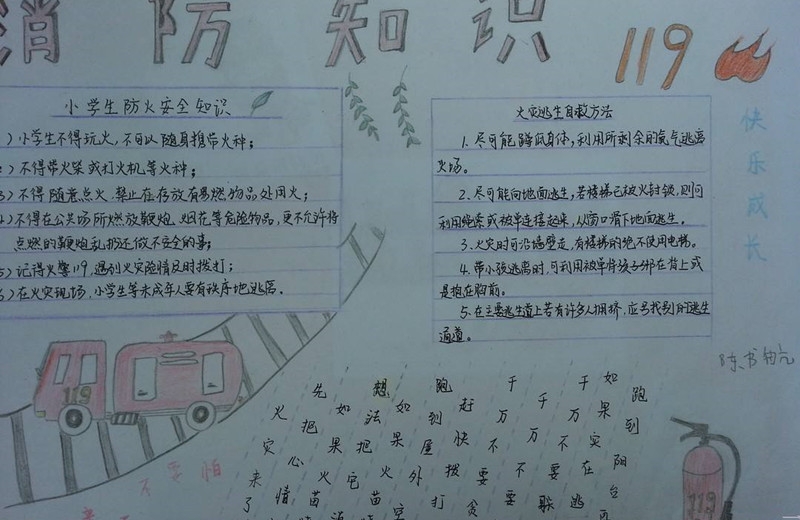 消防知识
119
快乐成长
小学生防火安全知识
)小学生不得玩火,不可以随身携带火种;
)不得带火柴或打火机等火种;
3)不得随意点火,禁止在存放有易燃物品处用火;
4)不得在公共场所燃放鞭炮、烟花等危险物品,更不允许将
点燃的鞭炮乱扔还做不安全的事;
5)记得火警119,遇到火灾险情及时拨打;
6)在火灾现场,小学生等未成年人要有秩序地逃离.
火灾逃生自救方法
1.尽可能蹲低身体,利用所剩余的氧气逃离
火场。
2.尽可能向地面逃生,若楼梯已被火封锁,则可
利用绳索或被单连接起来,从窗口滑下地面逃生。
3.火灾时可沿墙壁走,有楼梯的地不使用电梯。
4.带小孩逃离时,可利用被单将孩子绑在背上或
是抱在胸前。
5.在主要逃生道上若有许多人拥挤,应另找别的逃生
通道。
119
不要怕
火灾来了
先把心情
如果火苗
想法把它
如果火苗
跑到屋外
赶快拨打
千万不要贪
千万不要
千万不要联
如果实在逃
跑到阳台
119